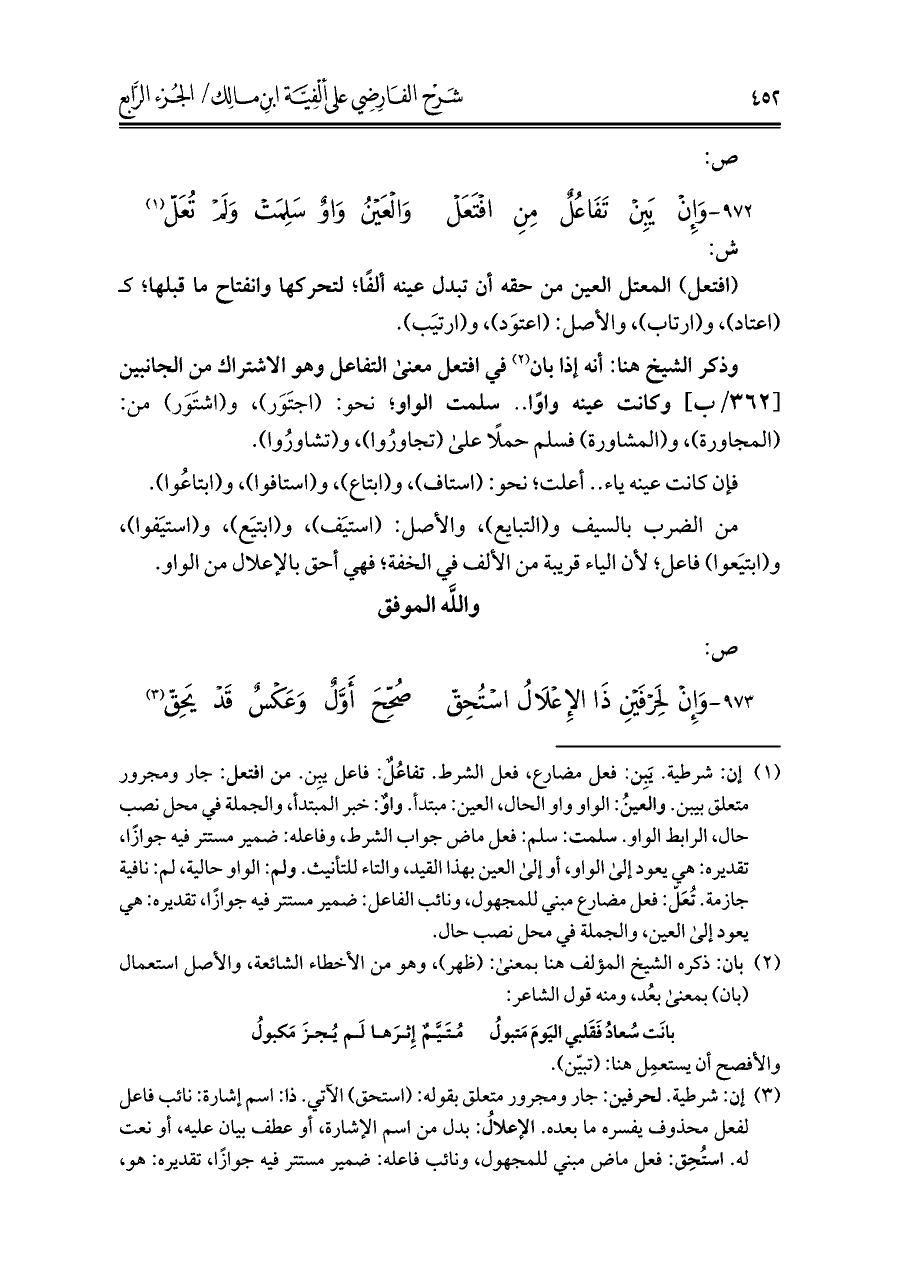 ٤٥٢ شَرْح الفَارِضِي عَلى أَلْفِيَّة ابنِ مَالِك/ الجُزء الرَّابع
ص:
٩٧٢-وَإِنْ يَبِنْ تَفَاعُلٌ مِنِ افْتَعَلْ وَالْعَيْنُ وَاوٌ سَلِمَتْ وَلَمْ تُعَلّ(١)
ش:
(افتعل) المعتل العين من حقه أن تبدل عينه ألفًا؛ لتحركها وانفتاح ما قبلها؛ كـ
(اعتاد)، و(ارتاب)، والأصل: (اعتوَد)، و(ارتيَب).
وذكر الشيخ هنا: أنه إذا بان(٢) في افتعل معنىٰ التفاعل وهو الاشتراك من الجانبين
[٣٦٢/ ب] وكانت عينه واوًا.. سلمت الواو؛ نحو: (اجتَوَر)، و(اشتَوَر) من:
(المجاورة)، و(المشاورة) فسلم حملًا علىٰ (تجاورُوا)، و(تشاورُوا).
فإن كانت عينه ياء.. أعلت؛ نحو: (استاف)، و(ابتاع)، و(استافوا)، و(ابتاعُوا).
من الضرب بالسيف و(التبايع)، والأصل: (استيَف)، و(ابتيَع)، و(استيَفوا)،
و(ابتيَعوا) فاعل؛ لأن الياء قريبة من الألف في الخفة؛ فهي أحق بالإعلال من الواو.
واللَّه الموفق
ص:
٩٧٣-وَإِنْ لِحَرْفَيْنِ ذَا الإِعْلَالُ اسْتُحِقّ صُحِّحَ أَوَّلٌ وَعَكْسٌ قَدْ يَحِقّ(٣)
(١) إن: شرطية. يَبِن: فعل مضارع، فعل الشرط. تفاعُلٌ: فاعل يبِن. من افتعل: جار ومجرور
متعلق بيبن. والعينُ: الواو واو الحال، العين: مبتدأ. واوٌ: خبر المبتدأ، والجملة في محل نصب
حال، الرابط الواو. سلمت: سلم: فعل ماض جواب الشرط، وفاعله: ضمير مستتر فيه جوازًا،
تقديره: هي يعود إلىٰ الواو، أو إلىٰ العين بهذا القيد، والتاء للتأنيث. ولم: الواو حالية، لم: نافية
جازمة. تُعَلّ: فعل مضارع مبني للمجهول، ونائب الفاعل: ضمير مستتر فيه جوازًا، تقديره: هي
يعود إلىٰ العين، والجملة في محل نصب حال.
(٢) بان: ذكره الشيخ المؤلف هنا بمعنىٰ: (ظهر)، وهو من الأخطاء الشائعة، والأصل استعمال
(بان) بمعنىٰ بعُد، ومنه قول الشاعر:
بانَت سُعادُ فَقَلبي اليَومَ مَتبولُ مُتَيَّمٌ إِثرَها لَم يُجزَ مَكبولُ
والأفصح أن يستعمِل هنا: (تبيّن).
(٣) إن: شرطية. لحرفين: جار ومجرور متعلق بقوله: (استحق) الآتي. ذا: اسم إشارة: نائب فاعل
لفعل محذوف يفسره ما بعده. الإعلالُ: بدل من اسم الإشارة، أو عطف بيان عليه، أو نعت
له. استُحِق: فعل ماض مبني للمجهول، ونائب فاعله: ضمير مستتر فيه جوازًا، تقديره: هو،